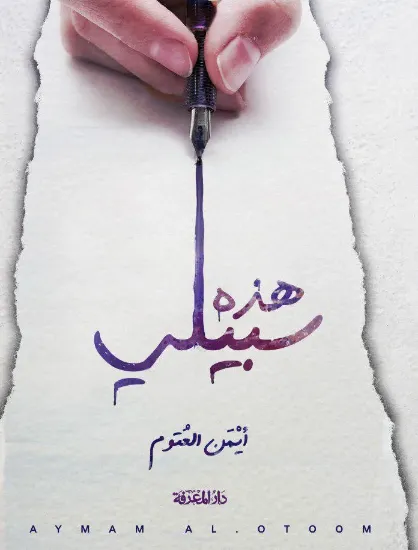 هذه
سبيلي
أيْمَن العُتوم
دَارُ المَعْرِفَة
AYMAM AL.OTOOM